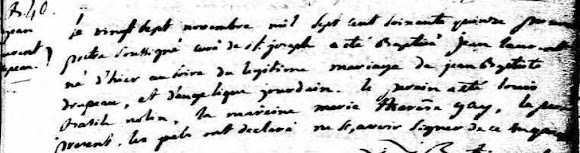 B.40.
jean
laurent
drapeau.
le vingt sept novembre mil sept cent soixante quinze par nous
pretre soussigné curé de st. joseph a eté Baptisé jean laurent
né d'hier au soire du legitime mariage de jean Baptiste
drapeau, et d'angelique jourdain. le parain a eté louis
Basile nolin, la mareine marie Therese gay, le pere
present. les quels ont declaré ne sçavoir signer de ce enquis